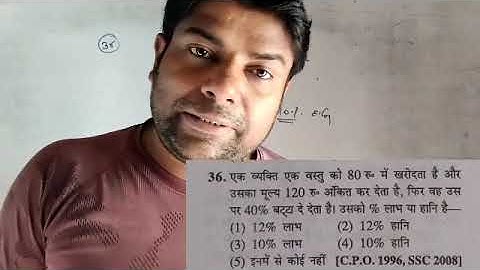 34
10% हानि
36. एक व्यक्ति एक वस्तु को 80 रु॰ में खरीदता है और
उसका मूल्य 120 रु॰ अंकित कर देता है, फिर वह उस
पर 40% बट्टा दे देता है। उसको % लाभ या हानि है—
(1) 12% लाभ (2) 12% हानि
(3) 10% लाभ (4) 10% हानि
(5) इनमें से कोई नहीं [C.P.O. 1996, SSC 2008]